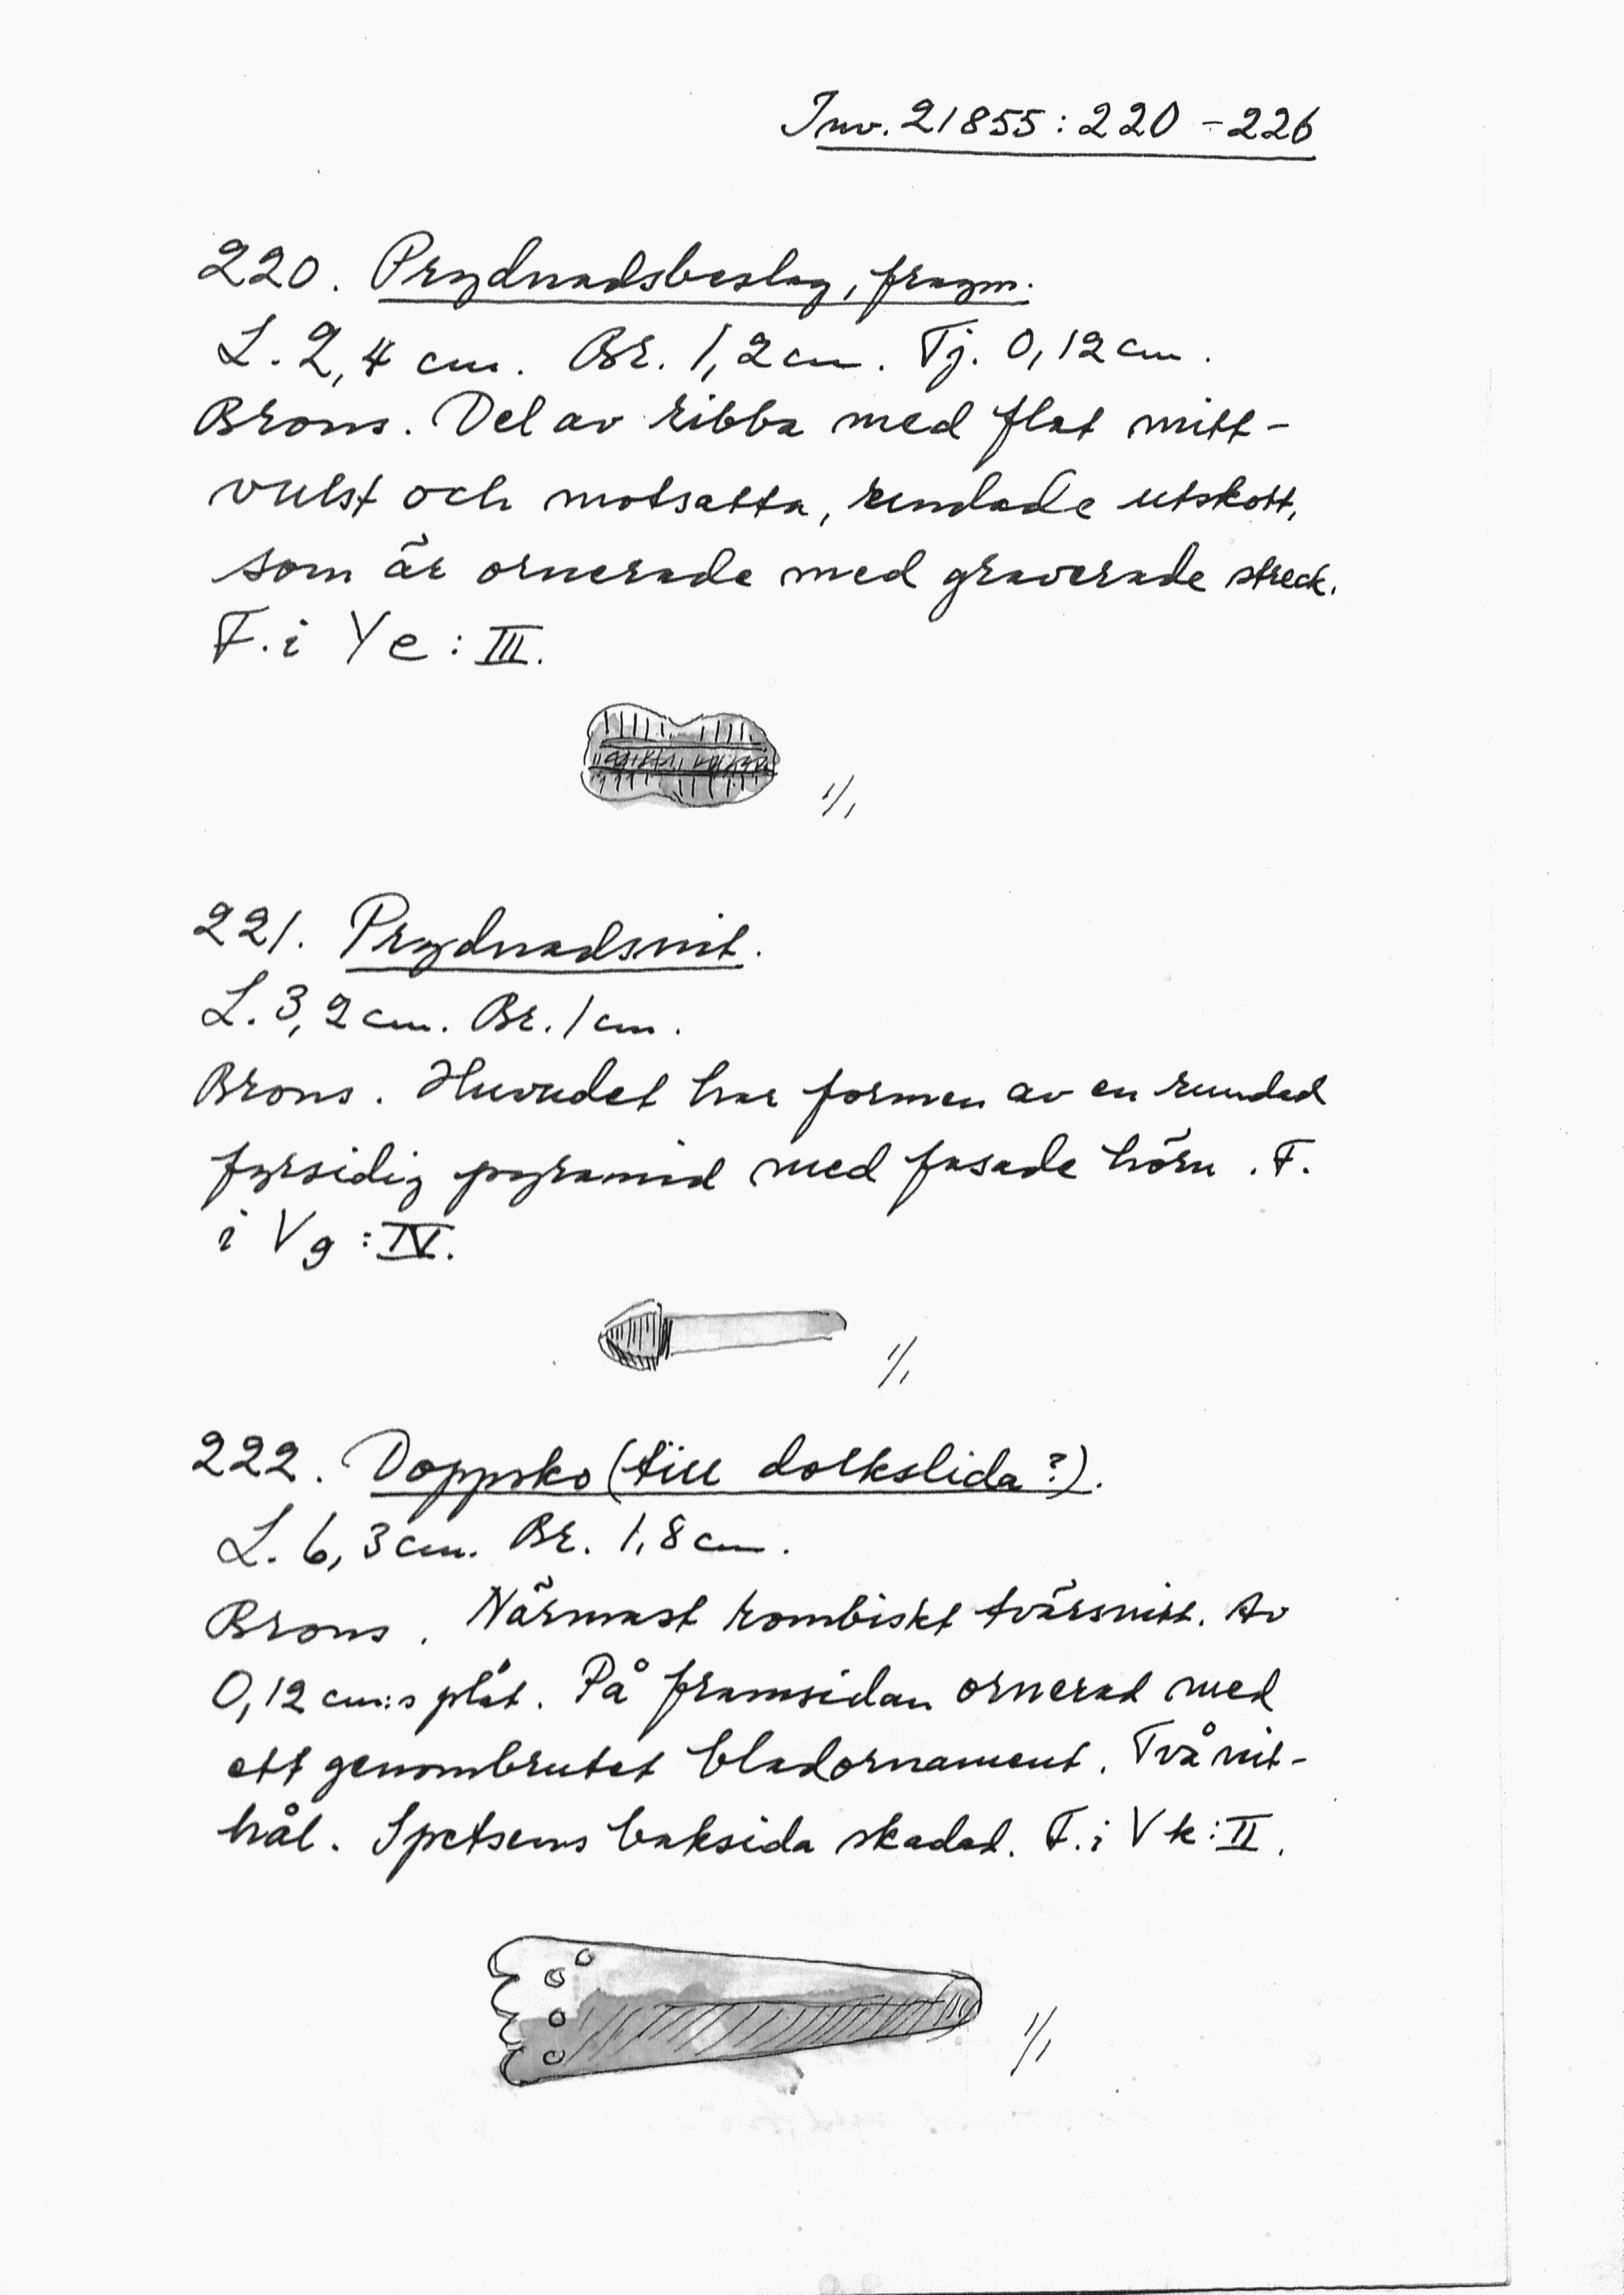 Inv. 21855:220-226
220. Prydnadsbeslag, fragm.
L. 2,4 cm. Br. 1,2 cm. Tj. 0,12 cm.
Brons. Del av ribba med flat mitt-
vulst och motsatta, rundade utskott,
som är ornerade med graverade streck.
F. i Ye:III.
1/1
221. Prydnadsnit.
L. 3,2 cm. Br. 1 cm.
Brons. Huvudet har formen av en rundad
fyrsidig pyramid med fasade hörn. F.
i Vg:IV.
1/1
222. Doppsko (till dolkslida?).
L. 6,3 cm. Br. 1,8 cm.
Brons. Närmast rombiskt tvärsnitt. Av
0,12 cm:s plåt. På framsidan ornerad med
ett genombrutet bladornament. Två nit-
hål. Spetsens baksida skadad. F. i Vk:II.
1/1